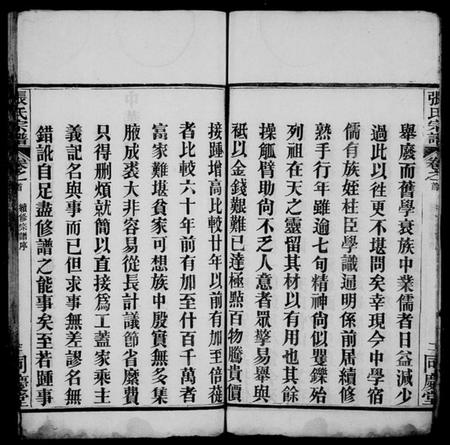 張氏宗譜
卷之首
同慶堂
舉廢而舊學衰族中業儒者日益減少
過此以徃更不堪問矣幸現今中學宿
儒有族姪柱臣學識過明係前届續修
熟手行年雖逾七旬精神尙似矍鑠殆
列祖在天之靈留其材以有用也其餘
操觚臂助尙不乏人意者眾擎易舉與
祗以金錢艱難已達極點百物騰貴價
接踵增高比較廿年以前有加至倍蓰
者比較六十年前有加至什百千萬者
富家難堪貧家可想族中殷實無多集
腋成裘大非容易從長計議節省糜費
只得删煩就簡以直接為工蓋家乘主
義記名與事而已但求事無差謬名無
錯訛自足盡修譜之能事矣至若踵事
張氏宗譜
卷之首
續修宗譜序
同慶堂